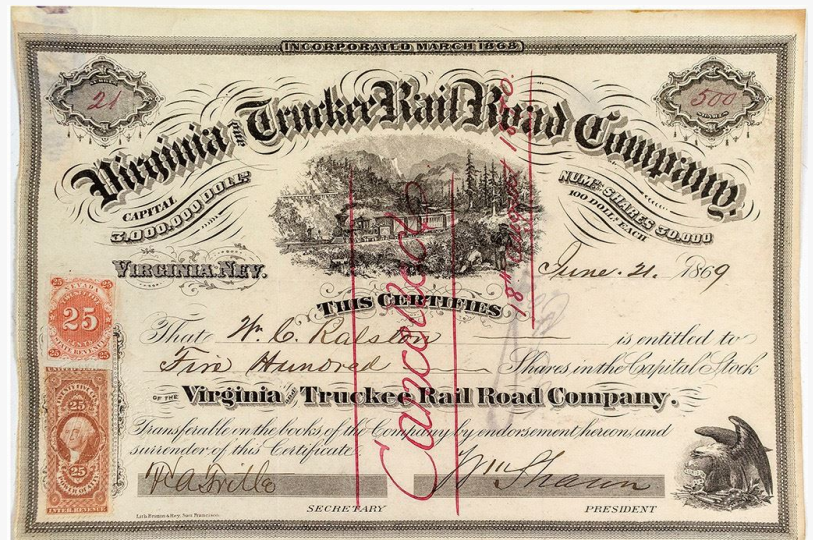 INCORPORATED MARCH 1868
21
500
SHARES
Virginia and Truckee Rail Road Company.
CAPITAL
3.000.000 DOLLS
NUMR. SHARES 30.000
100 DOLLS EACH
VIRGINIA, NEV.
June. 21, 1869
THIS CERTIFIES
That Wm. C. Ralston is entitled to
Five Hundred Shares in the Capital Stock
OF THE Virginia and Truckee Rail Road Company.
Transferable on the books of the Company by endorsement hereon, and
surrender of this Certificate.
SECRETARY
PRESIDENT
Cancelled
NEVADA
25
25
25
25
25
25
25
INTER. REVENUE